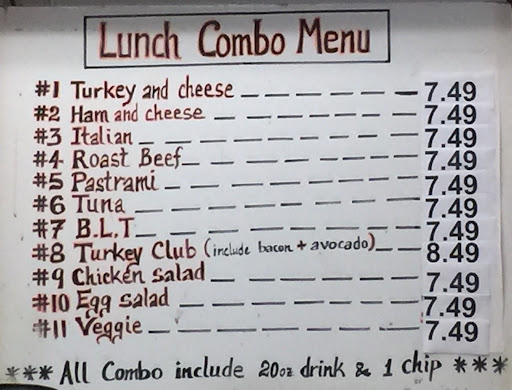 Lunch Combo Menu
#1 Turkey and cheese — — — — — — 7.49
#2 Ham and cheese — — — — — — — 7.49
#3 Italian — — — — — — — — — — 7.49
#4 Roast Beef — — — — — — — — 7.49
#5 Pastrami — — — — — — — — — 7.49
#6 Tuna — — — — — — — — — — 7.49
#7 B.L.T — — — — — — — — — — 7.49
#8 Turkey Club (include bacon + avocado) — — 8.49
#9 Chicken salad — — — — — — — 7.49
#10 Egg salad — — — — — — — — 7.49
#11 Veggie — — — — — — — — — 7.49
*** All Combo include 20oz drink & 1 chip ***